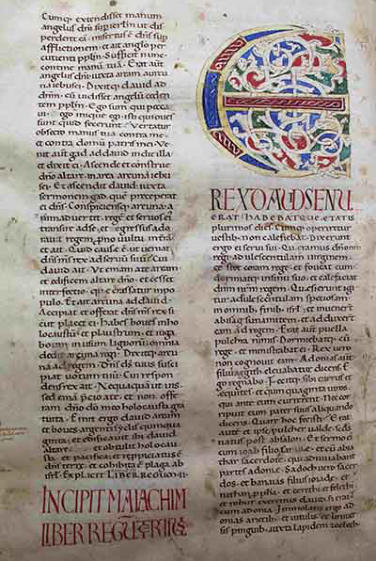 Cumq; extendisset manum
angelus dni sup ierlm ut dis
perderet eā · misertus ē dns sup
afflictionem · et ait angelo per
cutienti pplm · Sufficit nunc
contine manū tuā · Erat aut
angelus dni iuxta aream areuna
iebusei · Dixitq; david ad
dnm · cū vidisset angelū ceden
tem pplm · Ego sum qui pecca
vi · ego inique egi · isti qui oves
sunt quid fecerunt · Vertatur
obsecro manus tua contra me
et contra domū patris mei · Ve
nit aut gad ad david in die illa
et dixit ei · Ascende et constitue
dno altare in area areuna iebu
sei · Et ascendit david iuxta
sermonem gad que preceperat
ei dns · Conspiciensq; areuna a
nimadvertit · regē et servos ei'
transire ad se · et egressus ado
ravit regem
et ait · quid causē ē ut veniat
dns ms rex ad servū suū · Cui
david ait · Ut emam a te aream
et edificem altare dno · et cesset
interfectio que grassatur in po
pulo · Et ait areuna ad david ·
Accipiat et offerat dns ms rex si
cut placet ei · habes boves in ho
locaustū · et plaustrum · et iuga
boum in usum lignorū · omnia
dedit areuna regi · Dixitq; areu
na ad regem · Dns ds tuus susci
piat votum tuū · Cui respon
dens rex ait · Nequaquā ut vis
sed emā p̄cio a te · et non offe
ram dno do meo holocausta gra
tuita · Emit ergo david aream
et boves argenti siclis quinqua
ginta · et edificavit ibi david
altare
et obtulit holocau
sta · et pacifica · et repropiciatus ē
dns terre · et cohibita ē plaga ab
isrl · Explicit liber regū
INCIPIT MALACHIM
LIBER REGUM TERTIUS
E
REX DAVID SENU
ERAT HABEBATQUE ETATIS
plurimos dies · Cumq; operiretur
vestib; · non calefiebat · Dixerunt
ergo ei servi sui · Queramus dno nro
regi adulescentulam virginem
et stet coram rege · et foveat eum
dormiatq; in sinu suo · et calefaciat
dnm nrm regem · Quesierunt igi
tur adulescentulam speciosam
in omnib; finib; isrl · et invener
abisag sunamitem · et adduxert
eam ad regem · Erat aut puella
pulchra nimis · Dormiebatq; cū
rege · et ministrabat ei · Rex vero
non cognovit eam · Adonias aut
filius aggith elevabatur dicens · E
go regnabo · Fecitq; sibi currus et
equites · et quinquaginta viros
qui ante eum currerent · Nec cor
ripuit eum pater suus aliquando
dicens · Quare hoc fecisti · Erat
aute et ipse pulcher valde · secū
dus natus post absalon · Et sermo ei
cum ioab filio sarvie · et cū abia
thar sacerdote · qui adiuvabant
partes adonie · Sadoch vero sacer
dos · et banaias filius ioiade · et
nathan ppha · et semei
et robur exercitus david non erat
cum adonia · Immolatis ergo ad
onias arietib; · et vitulis · et univ
sis pinguib; · iuxta lapidem zoeleth